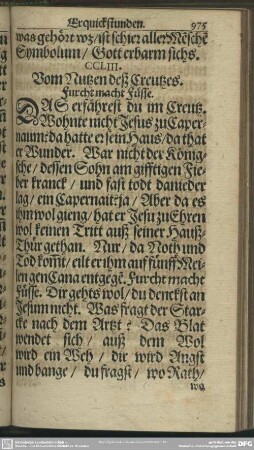 Erquickstunden. 975
was gehört wz/ ist schier aller Mẽschẽ
Symbolum/ Gott erbarm sichs.
CCLIII.
Vom Nutzen deß Creutzes.
Furcht macht Füsse.
DAS erfährest du im Creutz.
Wohnte nicht Jesus zu Caper-
naum: da hatte er sein Haus/ da that
er Wunder. War nicht der König-
sche/ dessen Sohn am gifftigen Fie-
ber kranck/ und fast todt danieder
lag/ ein Capernait: ja/ Aber da es
ihm wol gieng/ hat er Jesu zu Ehren
wol keinen Tritt auß seiner Hauß-
Thür gethan. Nur/ da Noth und
Tod kom̃t/ eilt er ihm auf fünff Mei-
len gen Cana entgegẽ. Furcht macht
Füsse. Dir gehts wol/ du denckst an
Jesum nicht. Was fragt der Star-
cke nach dem Artzt? Das Blat
wendet sich/ auß dem Wol
wird ein Weh/ dir wird Angst
und bange/ du fragst/ wo Rath/
wo